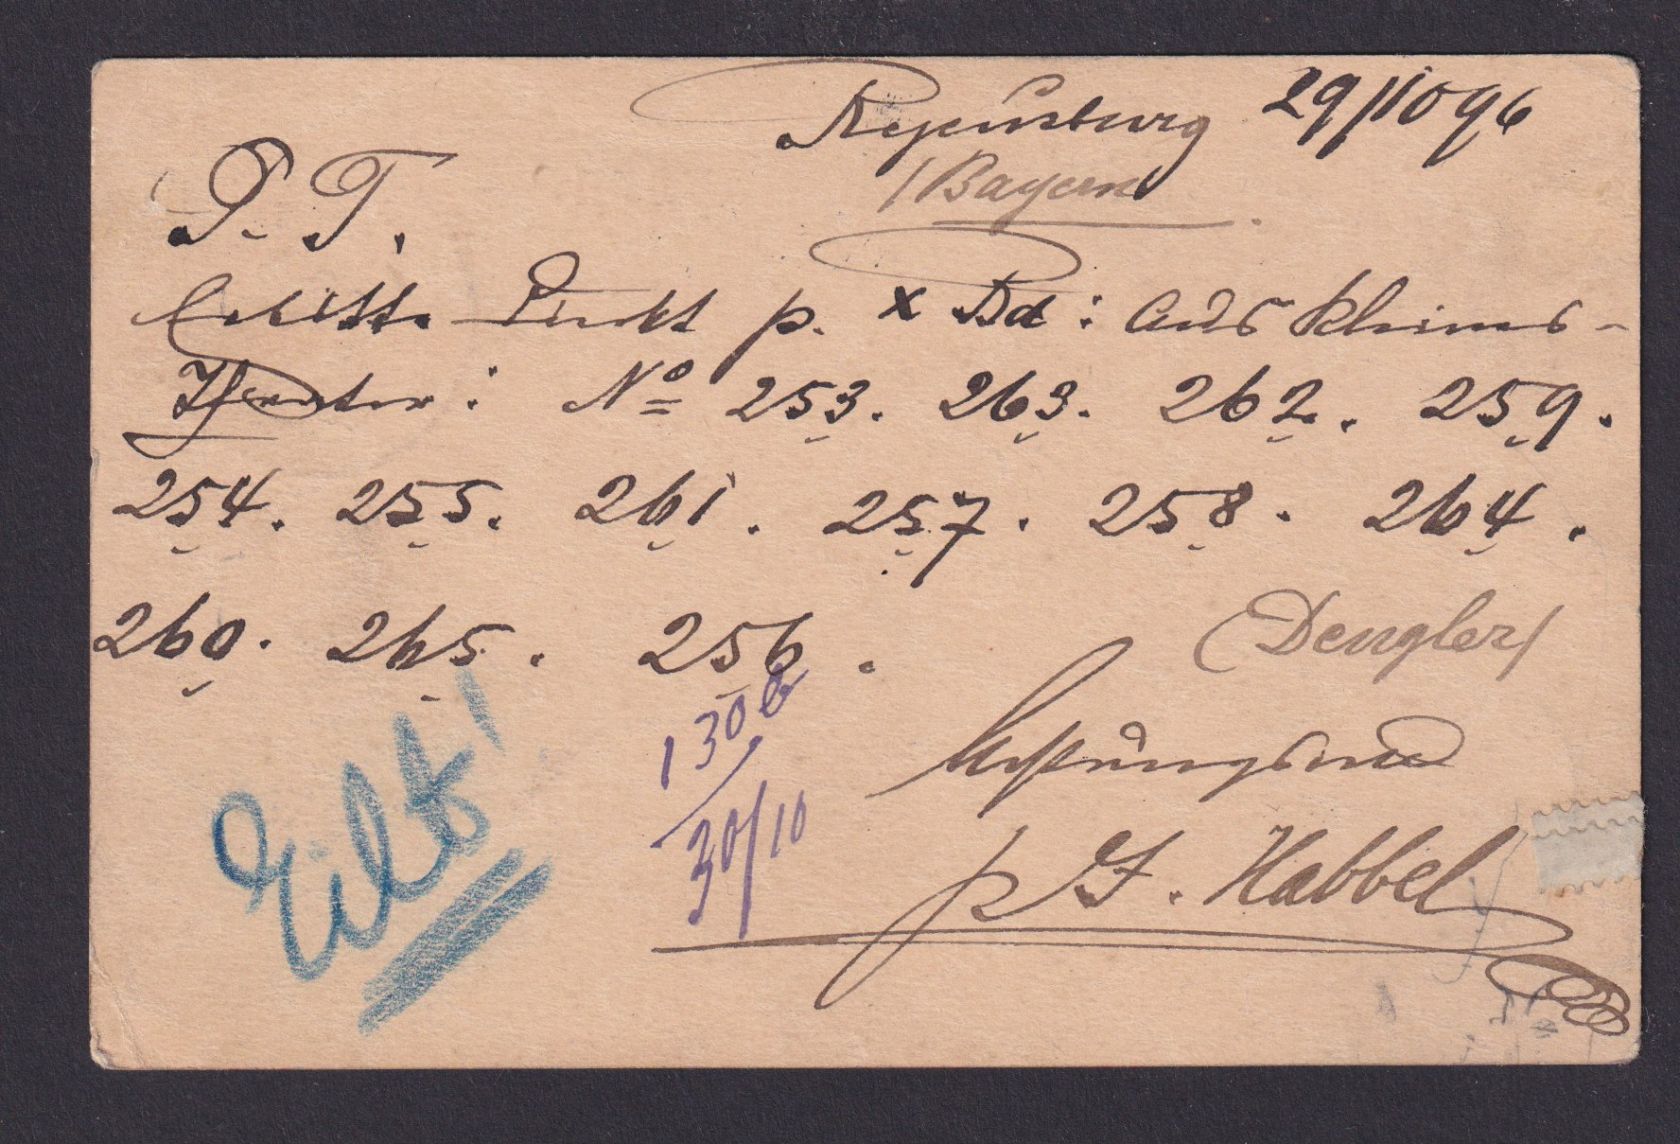 Regensburg 29/10 96
/Bayern
P. T.
Erbitte direkt p. x Bd: aus kleines
Theater: No 253. 263. 262. 259.
254. 255. 261. 257. 258. 264.
260. 265. 256.
(Dengler)
Eilt!
1306
30/10
Achtungsvoll
p J. Habbel